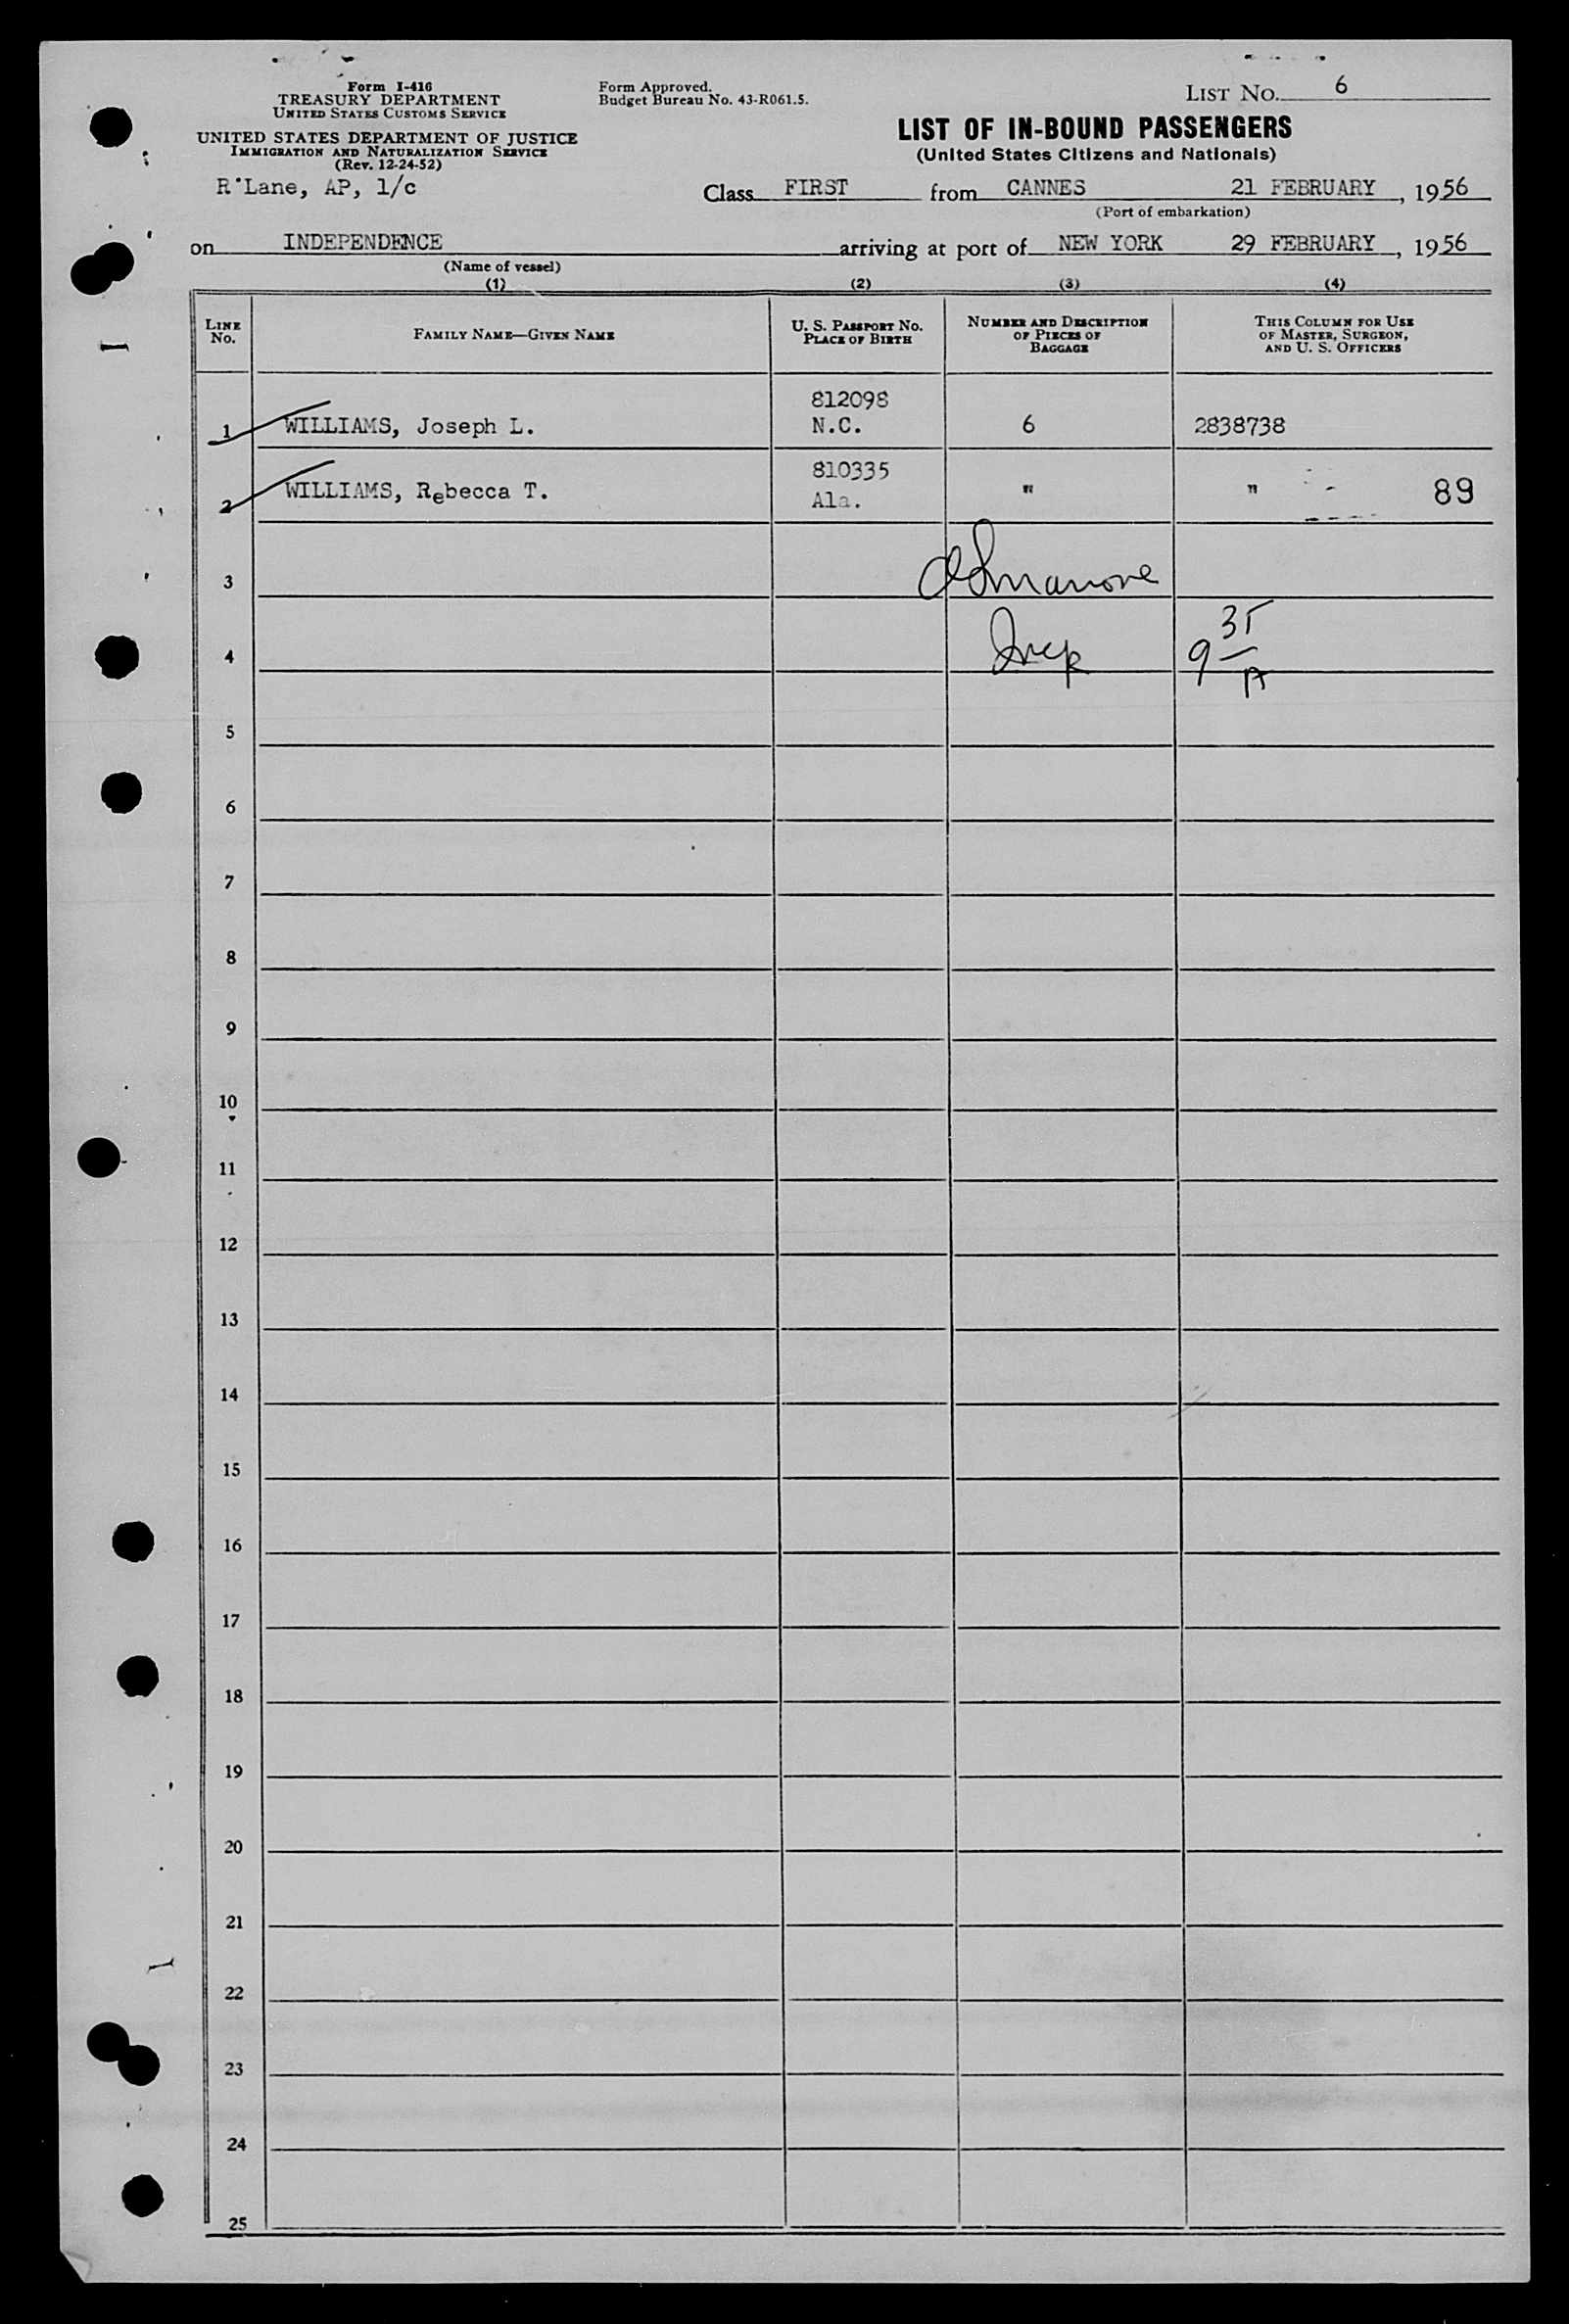 Form I-416
TREASURY DEPARTMENT
UNITED STATES CUSTOMS SERVICE
UNITED STATES DEPARTMENT OF JUSTICE
IMMIGRATION AND NATURALIZATION SERVICE
(Rev. 12-24-52)
Form Approved.
Budget Bureau No. 43-R061.5.
LIST No. 6
LIST OF IN-BOUND PASSENGERS
(United States Citizens and Nationals)
R'Lane, AP, 1/c
Class FIRST from CANNES 21 FEBRUARY, 1956
(Port of embarkation)
on INDEPENDENCE arriving at port of NEW YORK 29 FEBRUARY, 1956
(Name of vessel)
(1) (2) (3) (4)
LINE No.
FAMILY NAME—GIVEN NAME
U. S. PASSPORT No.
PLACE OF BIRTH
NUMBER AND DESCRIPTION
OF PIECES OF
BAGGAGE
THIS COLUMN FOR USE
OF MASTER, SURGEON,
AND U. S. OFFICERS
812098
1 WILLIAMS, Joseph L. N.C. 6 2838738
810335
2 WILLIAMS, Rebecca T. Ala. " " 89
3
4 Insp 9 35 A
5
6
7
8
9
10
11
12
13
14
15
16
17
18
19
20
21
22
23
24
25